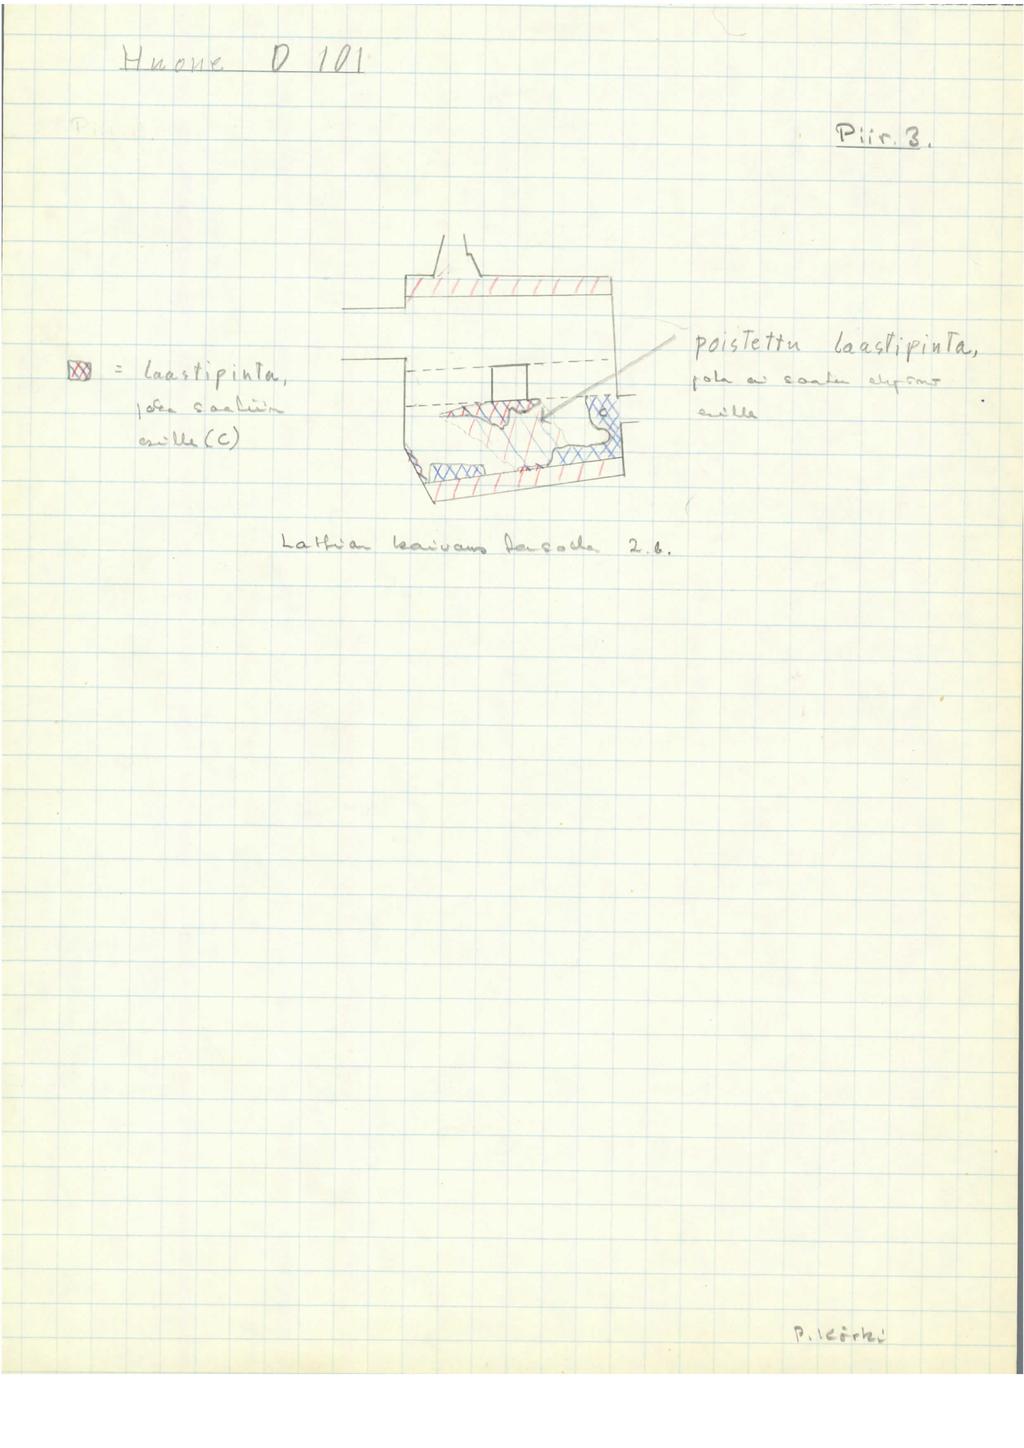 Huone D 101
Piir. 3.
= laastipinta,
joka saatiin
esille (C)
poistettu laastipinta,
jota ei saatu ehjänä
esille
Lattian kaivaus tasolla 2.b.
P. Kärki